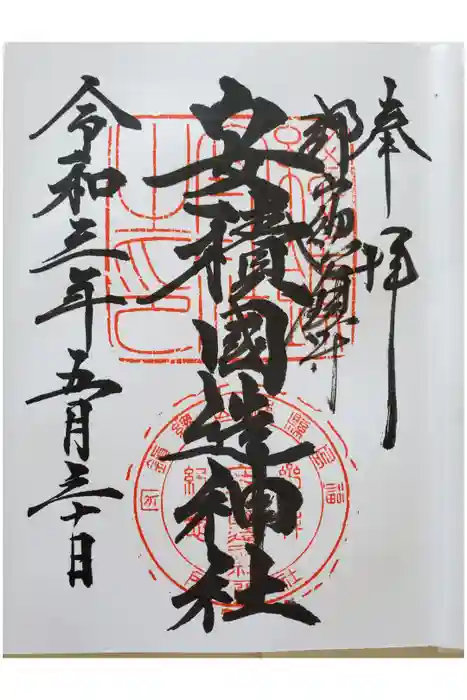 奉拝
郡山総鎮守
安積國造神社
令和三年五月三十日